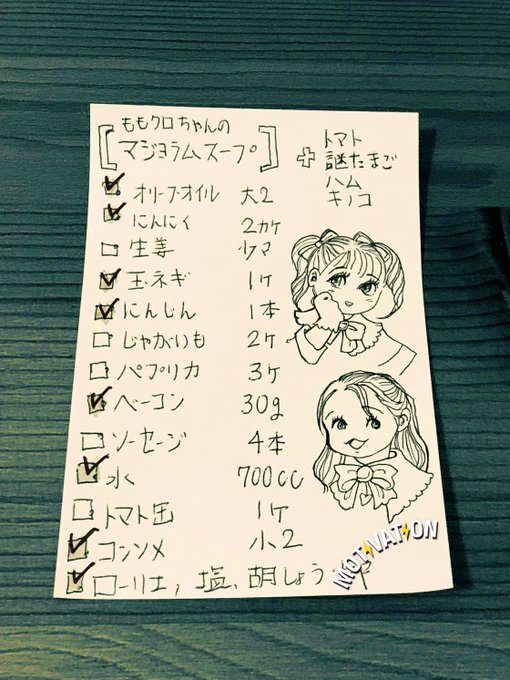 ももクロちゃんの
[マジョラムスープ]
＋トマト
謎たまご
ハム
キノコ
☑オリーブオイル 大2
☑にんにく 2カケ
□生姜 少マ
☑玉ネギ 1ケ
☑にんじん 1本
□じゃがいも 2ケ
□パプリカ 3ケ
☑ベーコン 30g
□ソーセージ 4本
☑水 700cc
□トマト缶 1ケ
☑コンソメ 小2
☑ローリエ, 塩、胡しょう
MOTIVATION